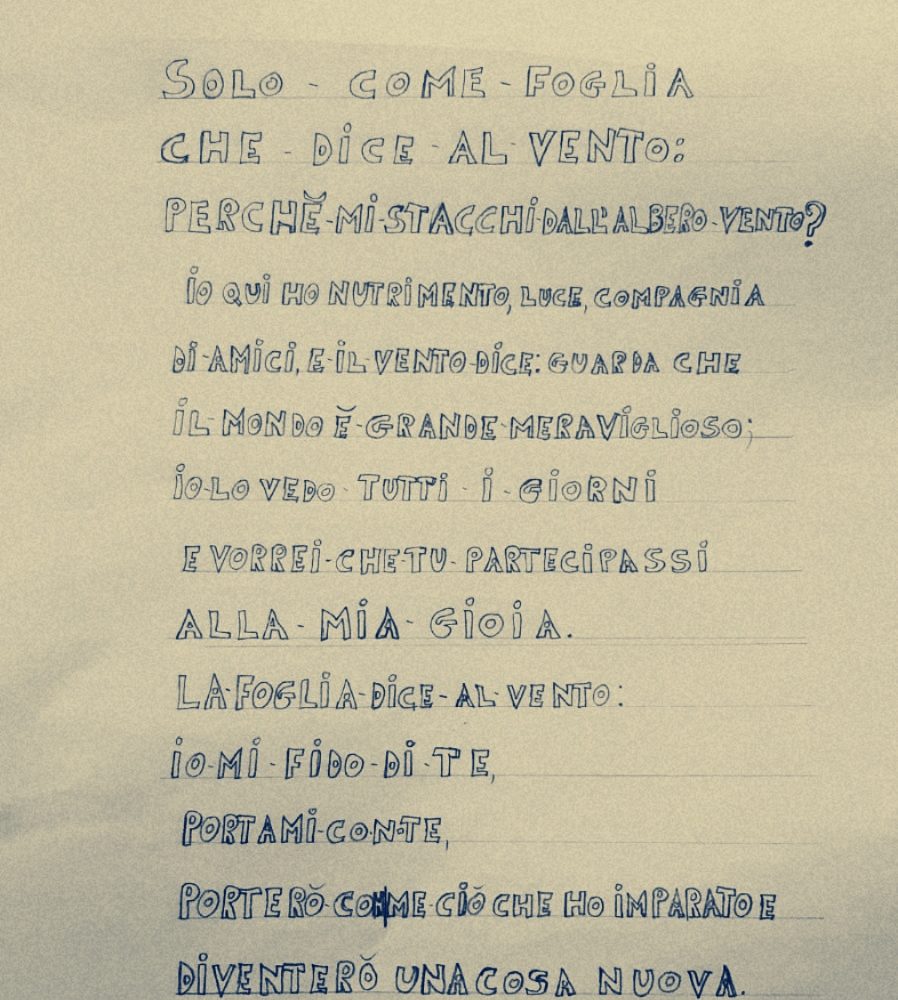 SOLO - COME - FOGLiA
CHE - DiCE - AL - VENTO:
PERCHĔ - Mi - STACCHi - DALL'ALBERO - VENTO?
iO QUi HO NUTRiMENTO, LUCE, COMPAGNiA
Di - AMiCi, E - iL - VENTO - DiCE: GUARDA CHE
iL - MONDO Ĕ - GRANDE - MERAViGLiOSO;
iO - LO VEDO - TUTTi - i - GiORNi
E VORREi - CHE - TU - PARTECiPASSi
ALLA - MiA - GiOiA.
LA - FOGLiA - DiCE - AL VENTO:
iO - Mi - FiDO - Di - TE,
PORTAMi - CON - TE,
PORTERŎ - CON ME - CiŎ CHE HO iMPARATO E
DiVENTERŎ UNA COSA NUOVA.